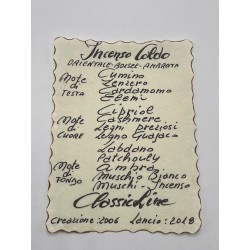 Incenso Caldo
ORIENTALE-BOISÉE-AMBRATA
Note di Testa
Cumino
Zenzero
Cardamomo
Elemi
Note di Cuore
Cipriol
Cashmere
Legni preziosi
Legno Guajaco
Note di Fondo
Labdano
Patchouly
Ambra
Muschio Bianco
Muschi-Incenso
Classic Line
Creazione: 2006 Lancio: 2018